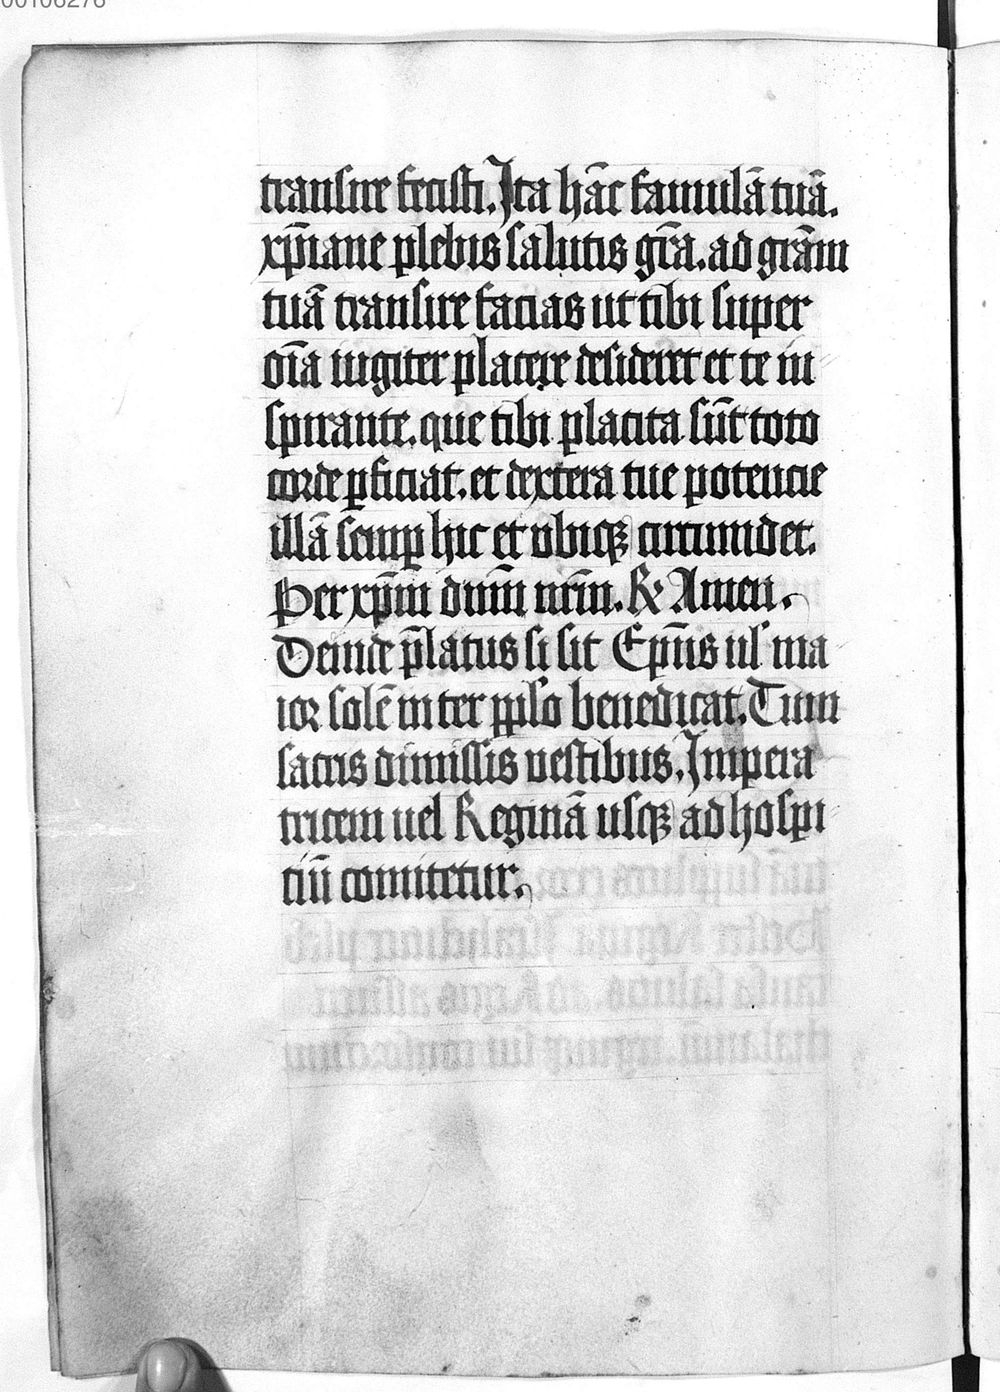 00106276
transire fecisti. Ita hāc famulā tuā.
xp̄iane plebis salutis gr̄a. ad grām
tuā transire facias ut tibi super
oīa iugiter placere desideret et te in
spirante. que tibi placita sūt toto
corde ꝑficiat. et dextera tue potencie
illā semꝑ hic et ubiqꝫ circumdet.
Per xp̄m dnm̄ nrm̄. ℟ Amen.
Deinde p̄latus si sit Ep̄us ul' ma
ior solēniter ꝑ ip̄o benedicat. Tum
sacris dimissis vestibus. Impera
tricem uel Reginā usqꝫ ad hospi
ciū comitetur.